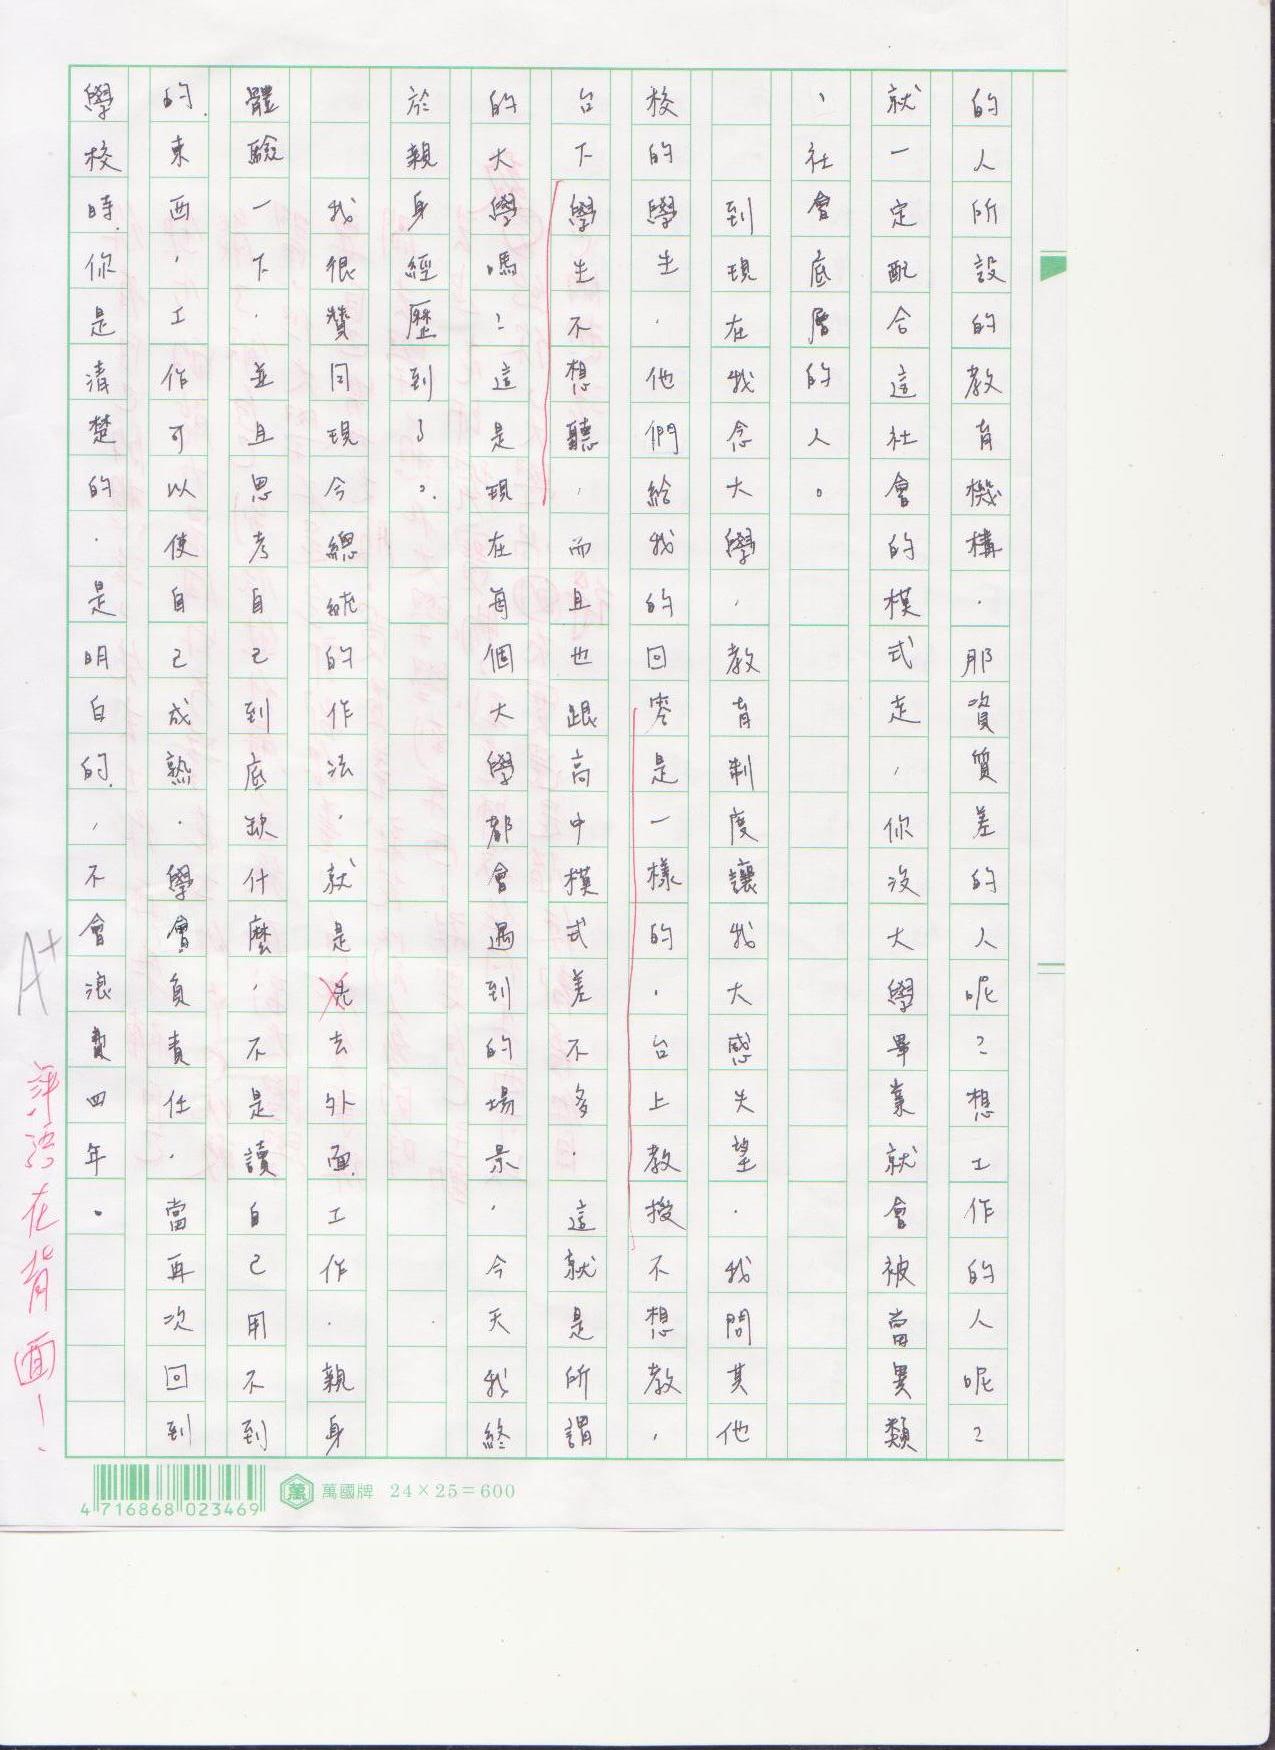 的人所設的教育機構，那資質差的人呢？想工作的人呢？
就一定配合這社會的模式走，你沒大學畢業就會被當異類
、社會底層的人。
到現在我念大學，教育制度讓我大感失望，我問其他
校的學生，他們給我的回答是一樣的，台上教授不想教，
台下學生不想聽，而且也跟高中模式差不多，這就是所謂
的大學嗎？這是現在每個大學都會遇到的場景，今天我終
於親身經歷到了。
我很贊同現今總統的作法，就是先去外面工作，親身
體驗一下，並且思考自己到底缺什麼，不是讀自己用不到
的東西，工作可以使自己成熟，學會負責任，當再次回到
學校時你是清楚的，是明白的，不會浪費四年。
A+
評語在背面！
4716868023469
萬
萬國牌 24×25=600